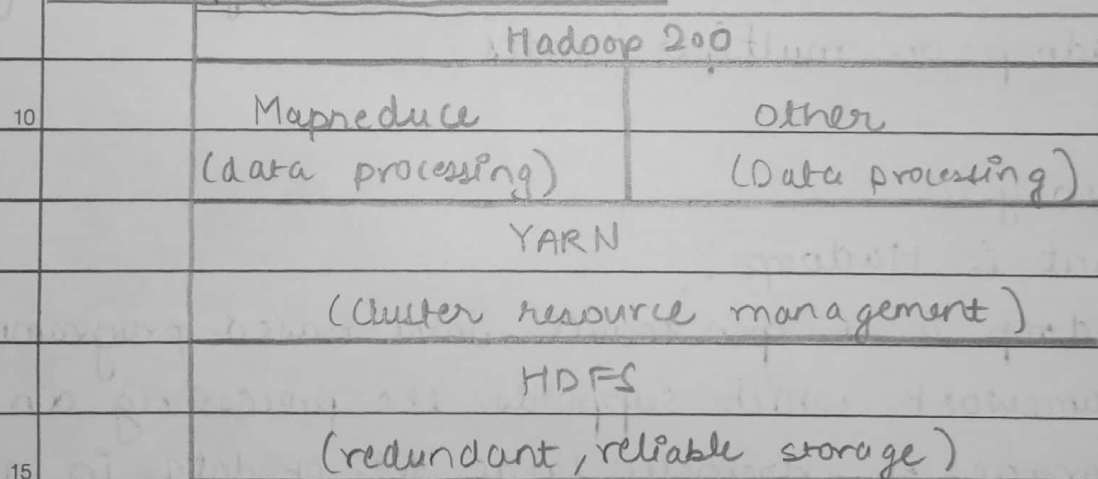 Hadoop 200
10
Mapreduce
Other
(data processing)
(Data processing)
YARN
(Cluster resource management)
HDFS
15
(redundant, reliable storage)